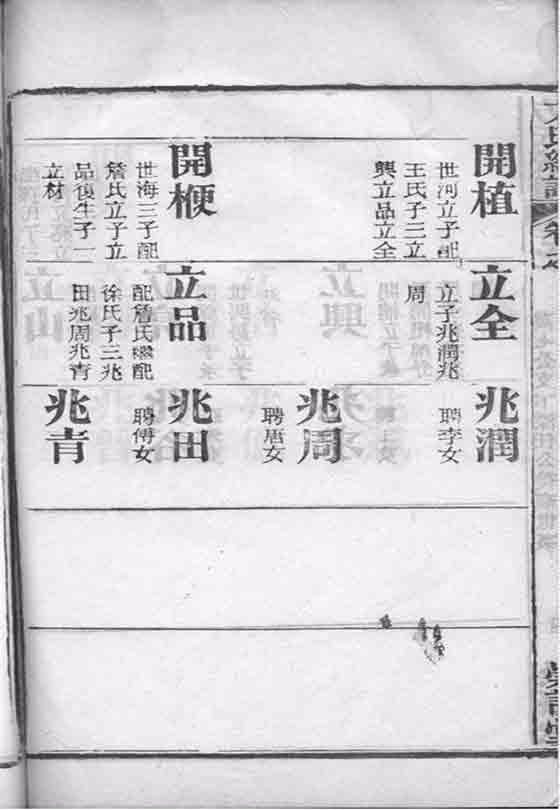 開植
世河立子配
王氏子三立
興立品立全
開楩
世海三子配
詹氏立子立
品復生子一
立材
立全
立子兆潤兆
周
立品
配詹氏繼配
徐氏子三兆
田兆周兆青
兆潤
聘李女
兆周
聘唐女
兆田
聘傅女
兆青